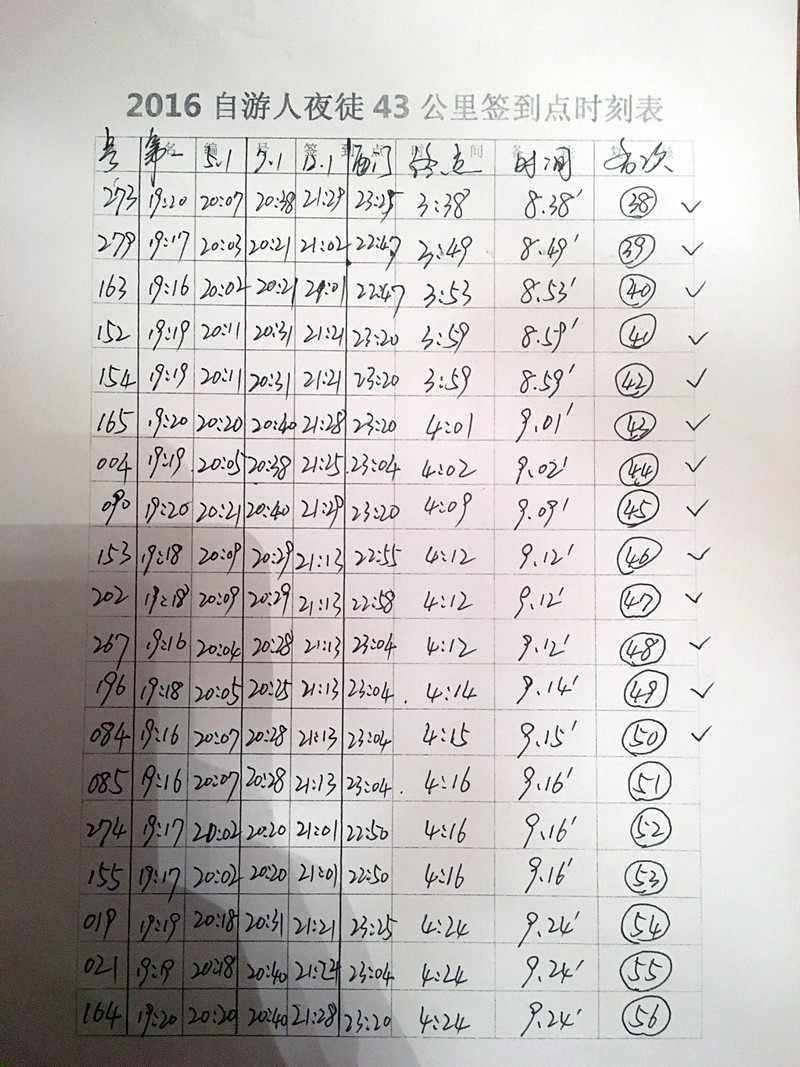 2016自游人夜徒43公里签到点时刻表
号 第一 5.1 9.1 13.1 西门 终点 时间 名次
273 19:20 20:07 20:38 21:29 23:25 3:38 8.38′ 38 ✓
279 19:17 20:03 20:21 21:02 22:47 3:49 8.49′ 39 ✓
163 19:16 20:02 20:21 21:01 22:47 3:53 8.53′ 40 ✓
152 19:19 20:11 20:31 21:21 23:20 3:59 8.59′ 41 ✓
154 19:19 20:11 20:31 21:21 23:20 3:59 8.59′ 42 ✓
165 19:20 20:20 20:40 21:28 23:20 4:01 9.01′ 43 ✓
004 19:19 20:05 20:38 21:25 23:04 4:02 9.02′ 44 ✓
090 19:20 20:21 20:40 21:29 23:20 4:09 9.09′ 45 ✓
153 19:18 20:09 20:29 21:13 22:55 4:12 9.12′ 46 ✓
202 19:18 20:09 20:29 21:13 22:58 4:12 9.12′ 47 ✓
267 19:16 20:04 20:28 21:13 23:04 4:12 9.12′ 48 ✓
196 19:18 20:05 20:25 21:13 23:04 4:14 9.14′ 49 ✓
084 19:16 20:07 20:28 21:13 23:04 4:15 9.15′ 50 ✓
085 19:16 20:07 20:28 21:13 23:04 4:16 9.16′ 51
274 19:17 20:02 20:20 21:01 22:50 4:16 9.16′ 52
155 19:17 20:02 20:20 21:01 22:50 4:16 9.16′ 53
019 19:19 20:18 20:31 21:21 23:25 4:24 9.24′ 54
021 19:19 20:18 20:40 21:24 23:04 4:24 9.24′ 55
164 19:20 20:20 20:40 21:28 23:20 4:24 9.24′ 56